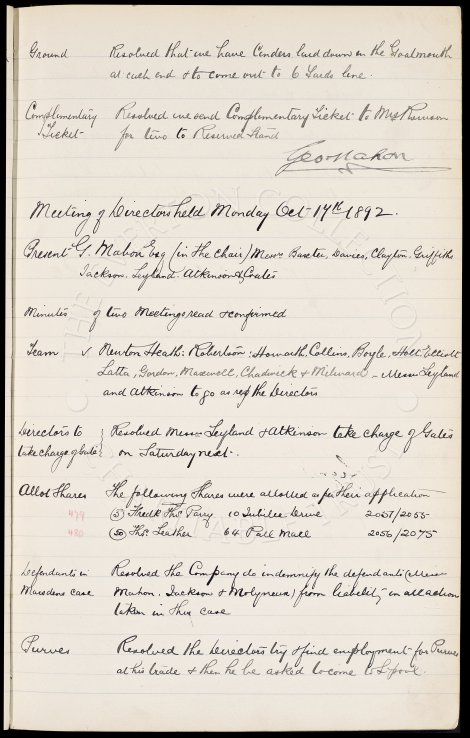 Ground Resolved that we have Cinders laid down in the Goalmouth
at each end & to come out to 6 Yards line.
Complimentary Resolved we send Complimentary Ticket to Mrs
Ticket for two to Reserved Stand
Geo Mahon
Meeting of Directors held Monday Oct 17th 1892.
Present G. Mahon Esq (in the Chair) Messrs Baxter, Davies, Clayton, Griffiths
Jackson. Leyland. Atkinson & Coates
Minutes of two Meetings read & confirmed
Team v Newton Heath: Robertson: Howarth, Collins, Boyle, Holt. Elliott
Latta, Gordon, Maxwell, Chadwick & Milward - Messrs Leyland
and Atkinson to go as rep the Directors
Directors to Resolved Messrs Leyland & Atkinson take charge of Gates
take charge of Gate on Saturday next.
Allot Shares The following Shares were allotted as per their application
479 (5) Fredk Thos Parry 10 Jubilee Drive 2051/2055
480 (20) Thos. Leather 64 Pall Mall 2056/2075
Defendants in Resolved the Company do indemnify the defendants (Messrs
Marsdens case Mahon. Jackson & Molyneux) from liability in all action
taken in this case
Purves Resolved the Directors try & find employment for Purves
at his trade & then he be asked to come to L'pool.